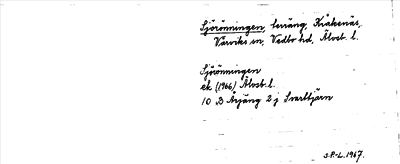 Sjörönningen, terräng, Kråkenäs,
Värviks sn, Vedbo hd, Älvsb. l.
Sjörönningen
ek (1966) Älvsb. l.
10 B Årjäng 2 j Svarttjärn
S.P.-L. 1967.